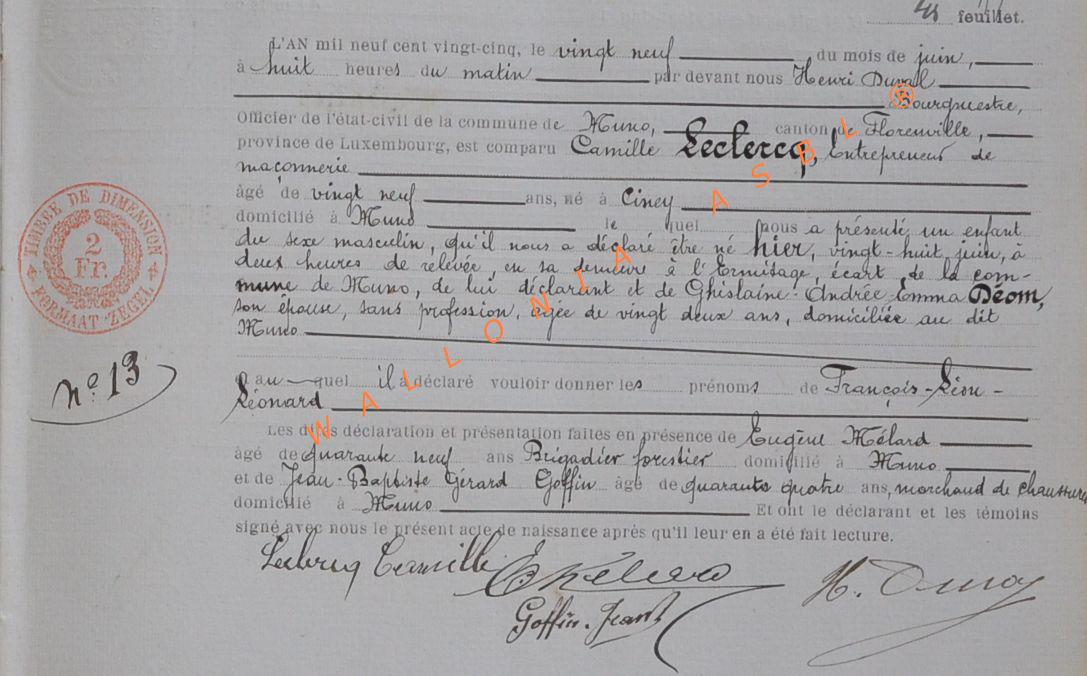 feuillet.
L'AN mil neuf cent vingt-cinq, le vingt neuf du mois de juin,
à huit heures du matin par devant nous Henri Duval
Bourgmestre,
Officier de l'état-civil de la commune de Muno, canton de Florenville,
province de Luxembourg, est comparu Camille Leclercq, Entrepreneur de
maçonnerie
âgé de vingt neuf ans, né à Ciney
domicilié à Muno le quel nous a présenté un enfant
du sexe masculin, qu'il nous a déclaré être né hier, vingt-huit juin, à
deux heures de relevée, en sa demeure à l'Ermitage, écart de la com-
mune de Muno, de lui déclarant et de Ghislaine-Andrée-Emma Déom,
son épouse, sans profession, âgée de vingt deux ans, domiciliée au dit
Muno
TIMBRE DE DIMENSION
2
Fr.
FORMAAT ZEGEL
No 13
au quel il a déclaré vouloir donner les prénoms de François-Léon-
Léonard
Les dites déclaration et présentation faites en présence de Eugène Mélard
âgé de quarante neuf ans Brigadier forestier domicilié à Muno
et de Jean-Baptiste Gérard Goffin âgé de quarante quatre ans, marchand de chaussures
domicilié à Muno Et ont le déclarant et les témoins
signé avec nous le présent acte de naissance après qu'il leur en a été fait lecture.
Leclercq Camille
Goffin-Jean
WALLONIA ASBL ®